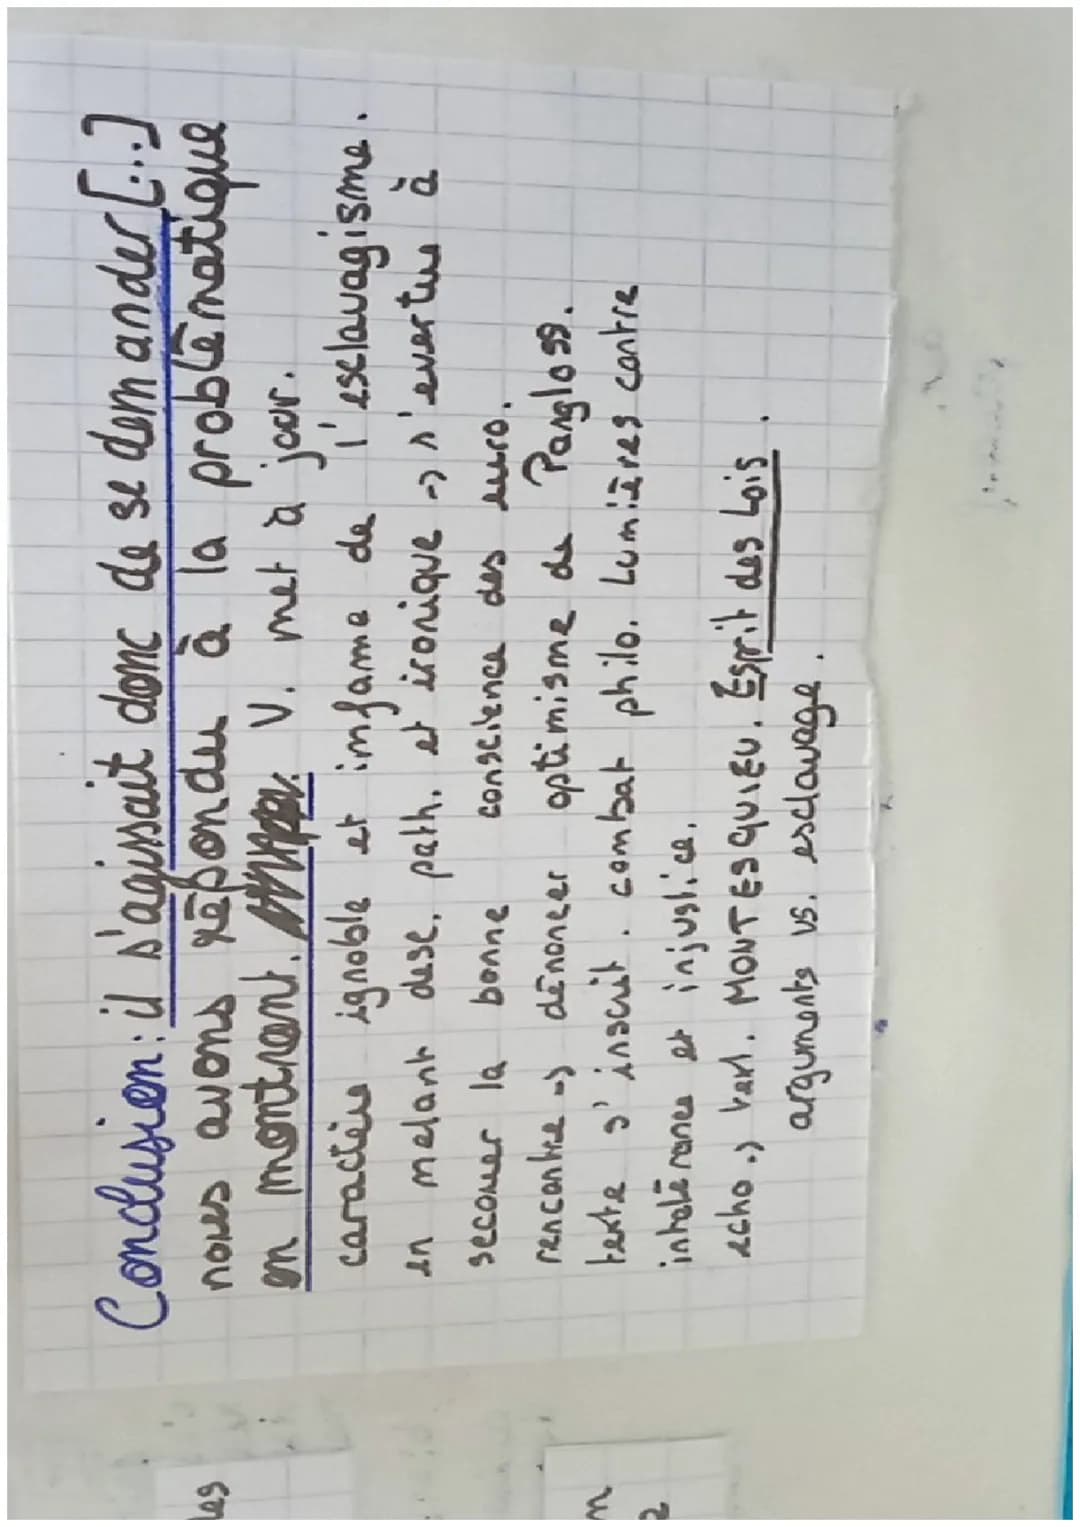 Conclusion: il s'agissait donc de se demander [...]
nous avons répondu à la problématique
en montrant. V. met à jour.
caractère ignoble et infame de l'esclavagisme.
en melant desc. path. et ironique -> s'evertue à
secouer la bonne conscience des euro.
rencontre => dénoncer optimisme de Pangloss.
texte s'inscrit. combat philo. Lumières contre
intolérance et injustice.
echo => text. MONTESQUIEU. Esprit des Lois.
arguments vs. esclavage.
les
n